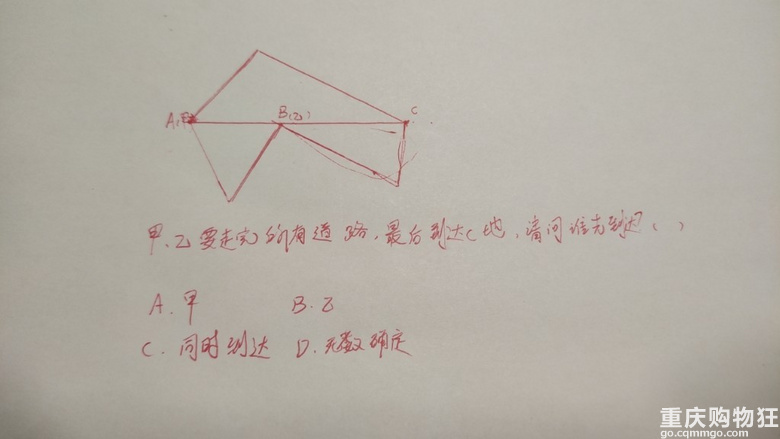 A(甲) B(乙) C
甲、乙要走完所有道路,最后到达C地,请问谁先到达( )
A. 甲 B. 乙
C. 同时到达 D. 无数确定
重庆购物狂
go.cqmmgo.com